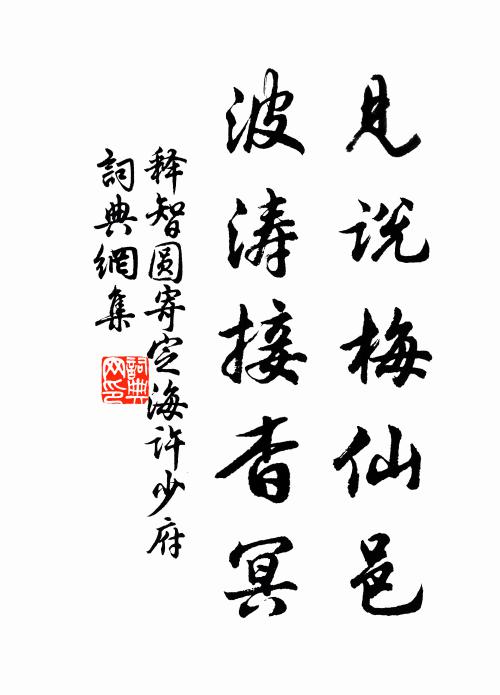 見说梅仙邑
波涛接杳冥
释智圆寄定海许少府
詞典網集
詞典网印